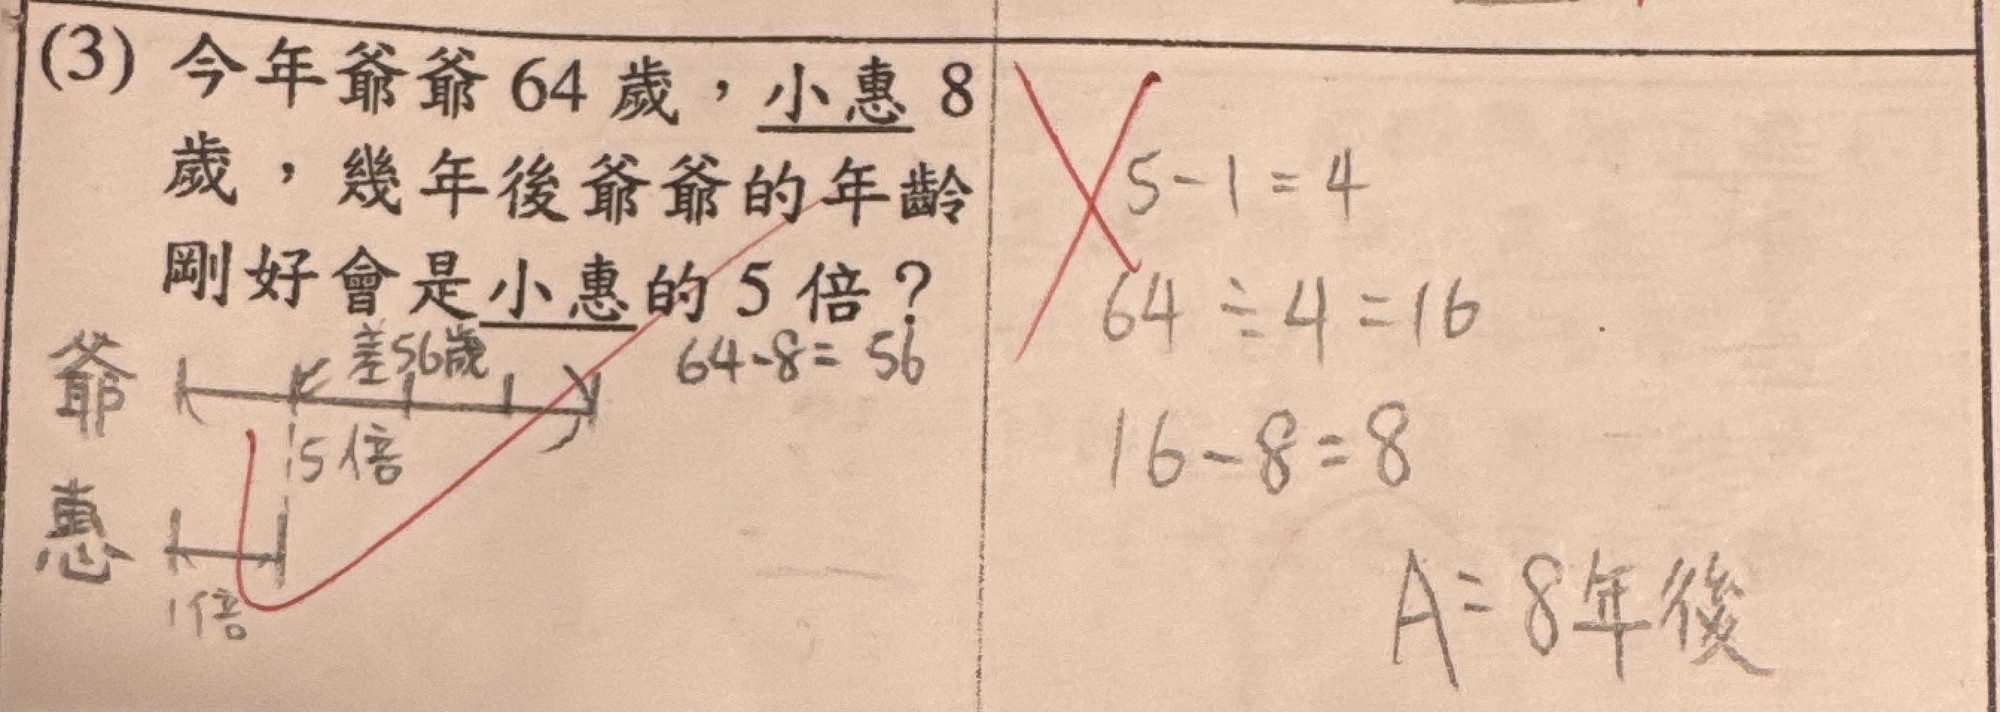 (3) 今年爺爺 64 歲，小惠 8
歲，幾年後爺爺的年齡
剛好會是小惠的 5 倍？
差56歲
64-8= 56
爺
5倍
惠
1倍
5-1=4
64÷4=16
16-8=8
A=8年後